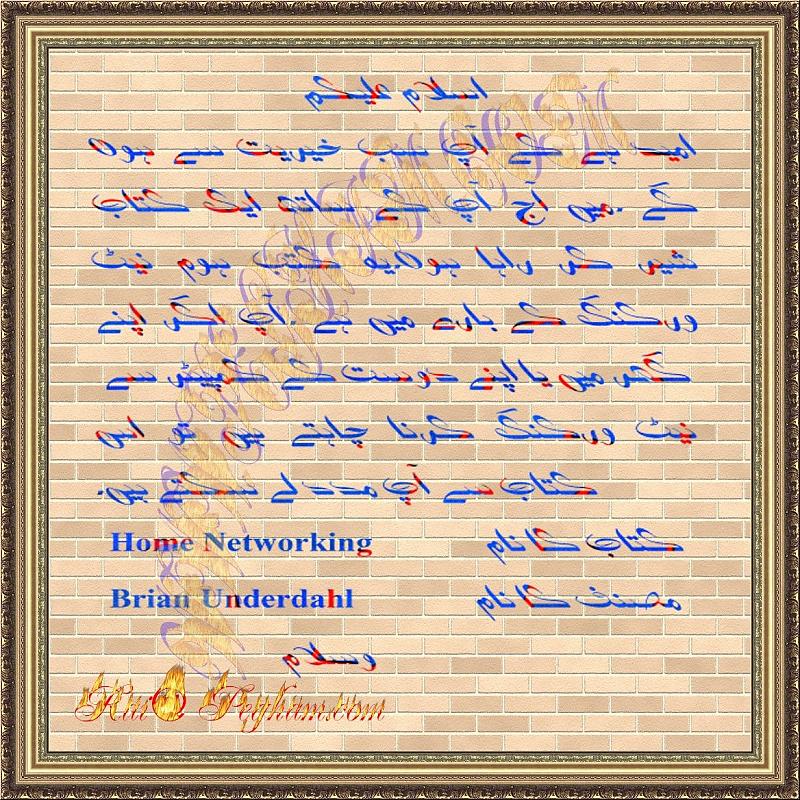 اسلام علیکم
امید ہے کے آپ سب خیریت سے ہوں
گے .میں آج آپ کے ساتھ ایک کتاب
شیر کر راہا ہوں.یہ کتاب ہوم نیٹ
ورکنگ کے بارے میں ہے .آپ اگر اپنے
گھر میں یا اپنے دوست کے کمپیٹر سے
نیٹ ورکنگ کرنا چاہتے ہیں تو اس
کتاب سے آپ مدد لے سکتے ہیں.
کتاب کا نام Home Networking
مصنف کا نام Brian Underdahl
وسلام
Peghham.com